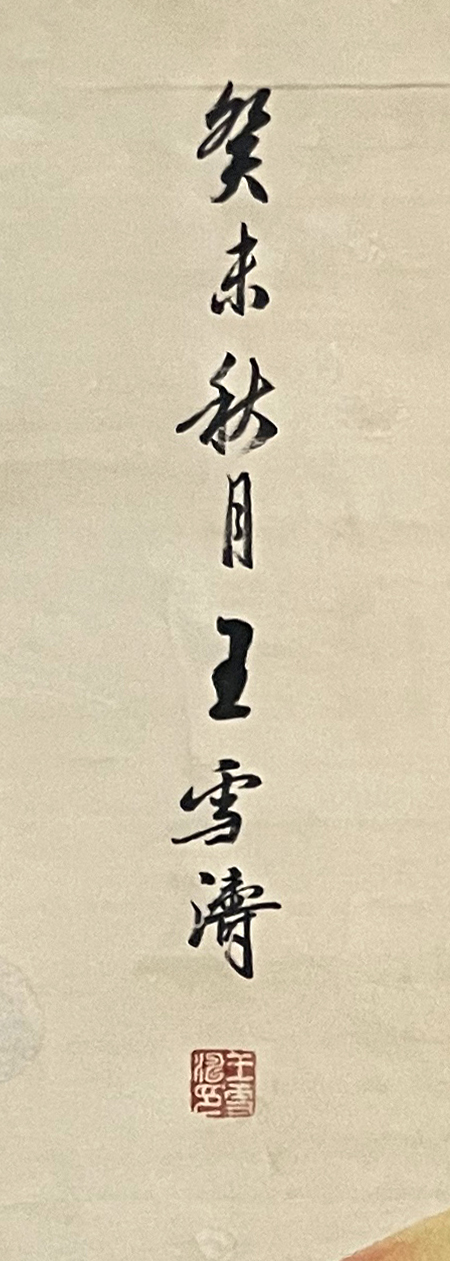 癸未秋月王雪濤
王雪濤印